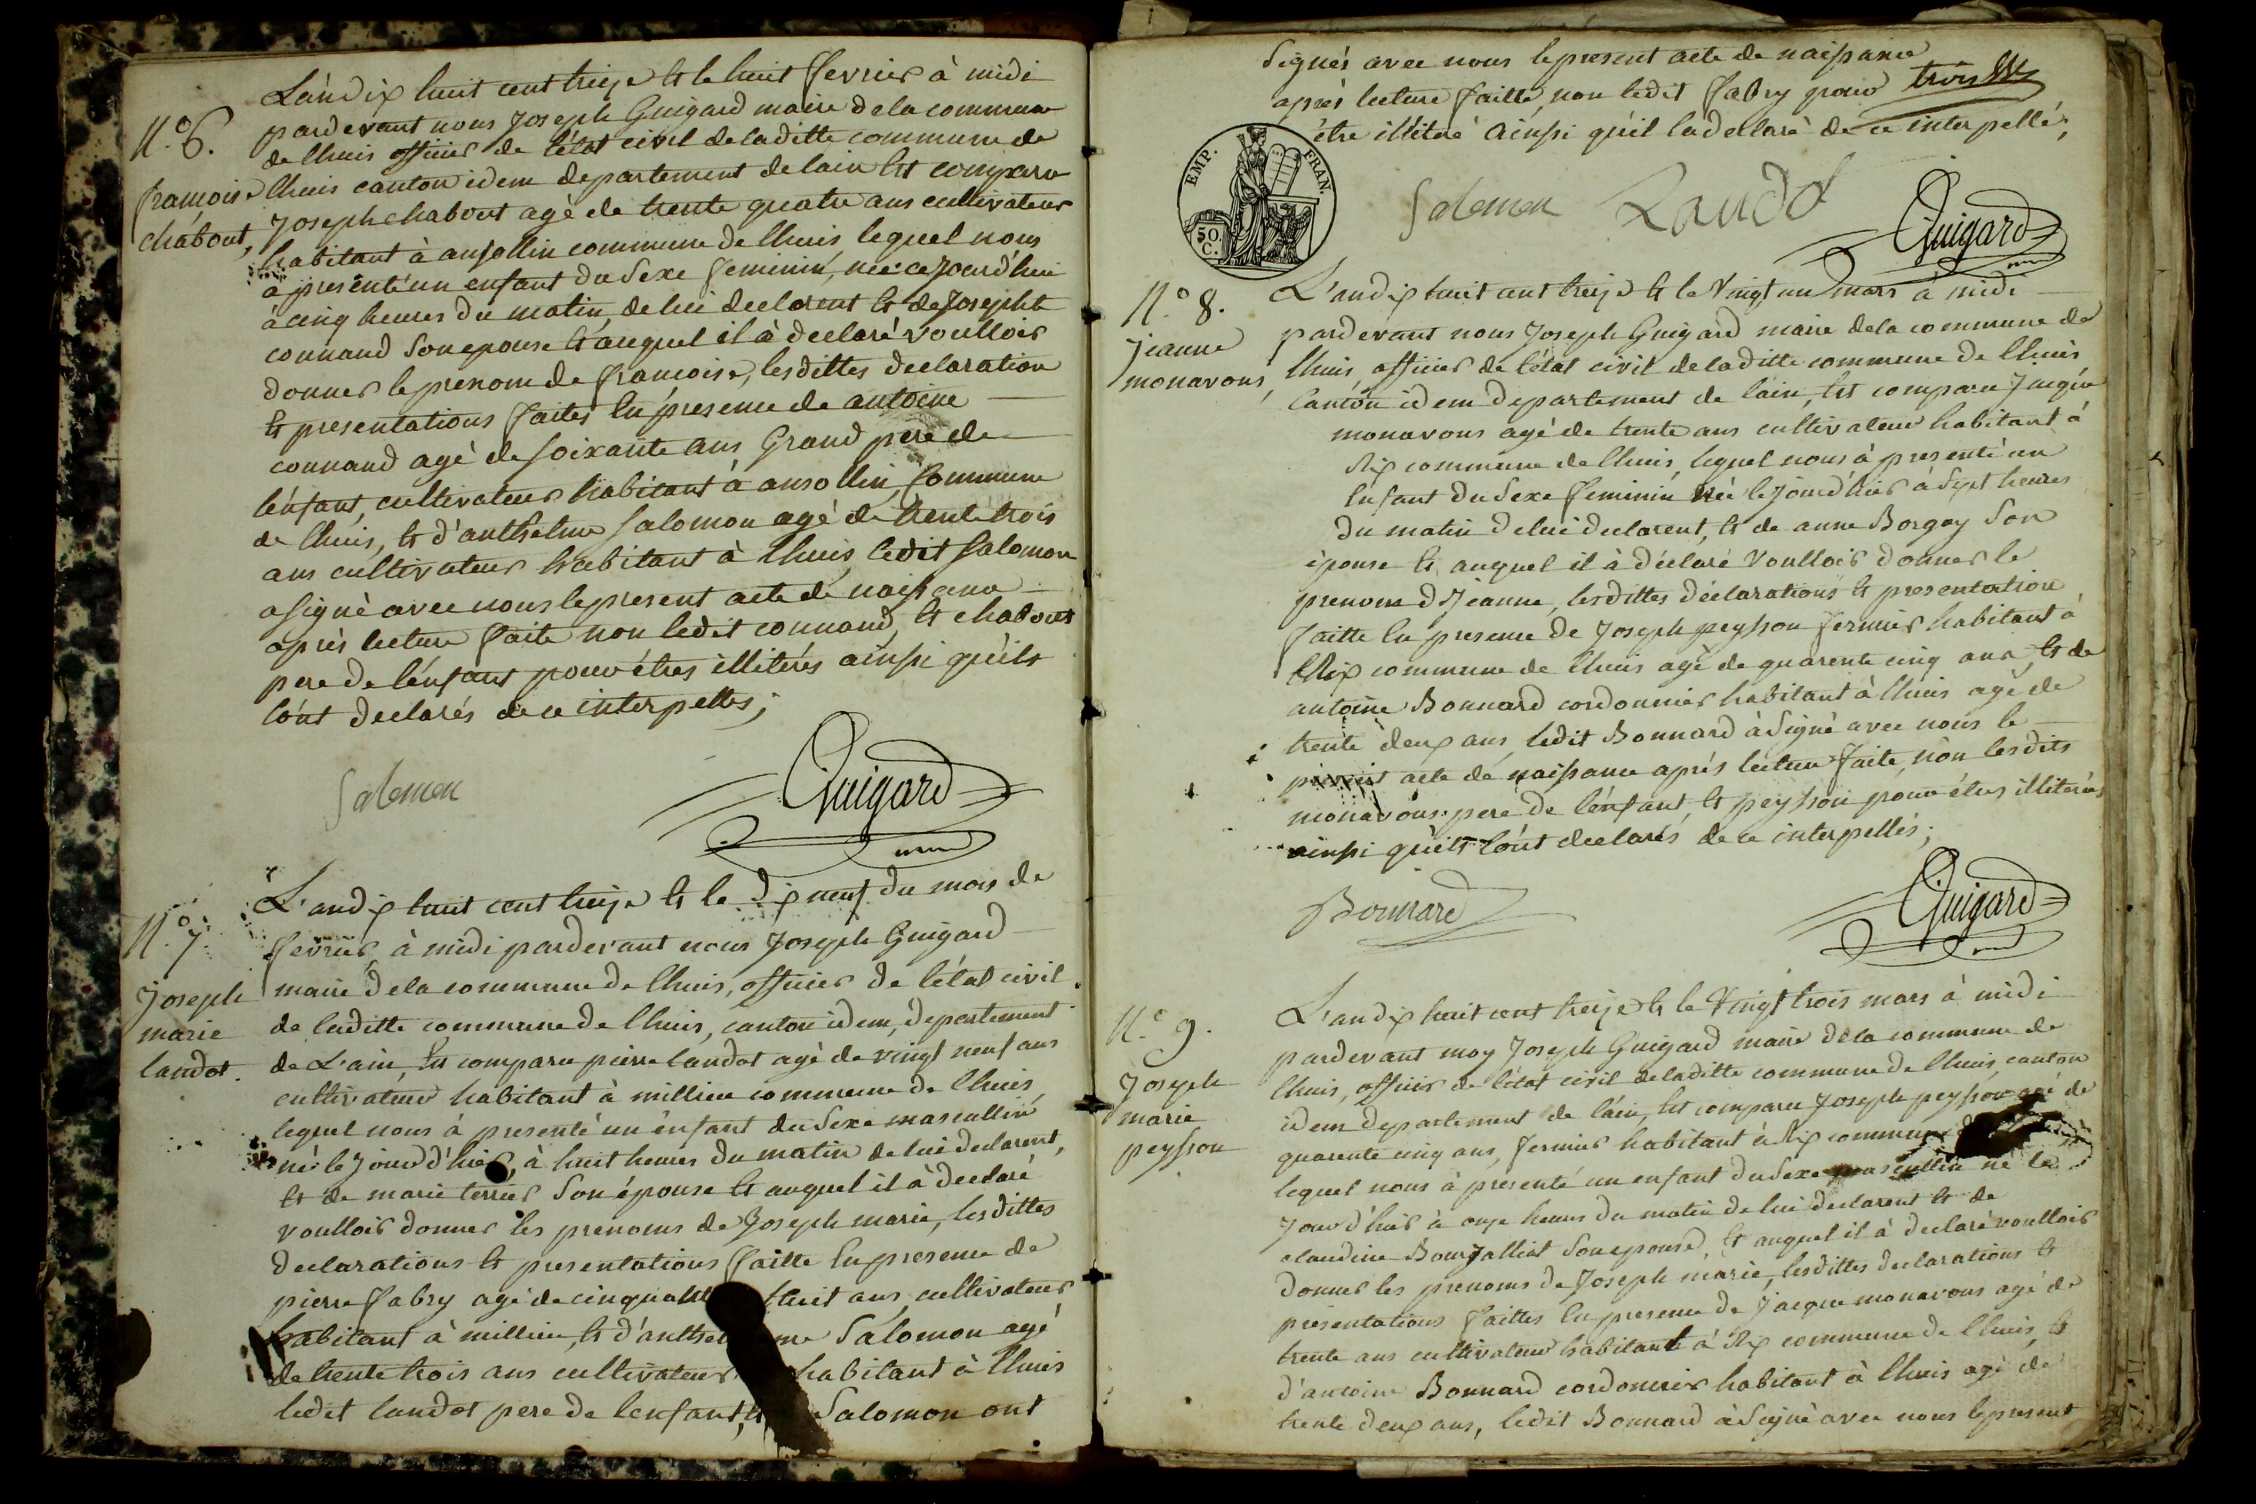 L'an dix huit cent treize & le huit fevrier à midi
N.° 6.
pardevant nous Joseph Guigard maire de la commune
de lhuis officier de l'état civil de laditte commune de
françoise
lhuis canton idem departement de lain est comparu
chabout,
Joseph chabout agé de trente quatre ans cultivateur
habitant à ansollin commune de lhuis lequel nous
à presenté un enfant du Sexe feminin, née ce jourd'hui
à cinq heures du matin, de lui declarent & de Josephte
connand Son epouse & auquel il à declaré voulloir
donner le prenom de françoise, lesdittes declaration
& presentations faites En presence de antoine
connand agé de soixante ans Grand pere de
l'enfant, cultivateur habitant à ansollin, commune
de lhuis, & d'anthelme Salomon agé de trente trois
ans cultivateur habitant à lhuis, ledit Salomon
a signé avec nous le present acte de naissance
après lecture faite non ledit connand, & chabout
pere de l'enfant pour étres illiterés ainsi qu'ils
l'ont declarés de ce interpellés;
Salemon
Guigard
L'an dix huit cent treize & le dix neuf du mois de
N.° 7.
fevrier, à midi pardevant nous Joseph Guigard
Joseph
maire de la commune de lhuis, officier de l'état civil
marie
de laditte commune de lhuis, canton idem, departement
landot.
de L'ain, Est comparu pierre landot agé de vingt neuf ans
cultivateur habitant à millieu commune de lhuis,
lequel nous à presenté un enfant du Sexe mascullin
né le jourd'hier, à huit heures du matin de lui declarent,
& de marie terrier Son épouse & auquel il à declaré
voulloir donner les prenoms de Joseph marie, lesdittes
declarations & presentations faitte En presence de
pierre fabry agé de cinquante huit ans, cultivateur
habitant à millieu, & d'anthelme Salomon agé
de trente trois ans cultivateur habitant à lhuis
ledit landot pere de lenfant, & Salomon ont
Signés avec nous le present acte de naissance
après lecture faitte, non ledit fabry pour
être illiteré ainsi qu'il la declaré de ce interpellé;
EMP. FRAN.
50. C.
Salemon Landot
Guigard
N.° 8.
L'an dix huit cent treize & le Vingt un mars à midi
Jeanne
pardevant nous Joseph Guigard maire de la commune de
monavons,
lhuis, officier de l'état civil de laditte commune de lhuis
Canton idem departement de l'ain, Est comparu Jacque
monavons agé de trente ans cultivateur habitant à
Rix commune de lhuis, lequel nous à presenté un
Enfant du Sexe feminin née le jourd'hier à Sept heures
du matin de lui declarent, & de anne Borgey Son
épouse & auquel il à déclaré Voulloir donner le
prenom d Jeanne, lesdittes déclarations & presentation
faitte En presence de Joseph peysson fermier habitant à
Rix commune de lhuis agé de quarente cinq ans, & de
antoine Bonnard cordonnier habitant à lhuis agé de
trente deux ans, ledit Bonnard à Signé avec nous le
present acte de naissance après lecture faite, non lesdits
monavons pere de l'enfant, & peysson pour étres illiterés
ainsi qu'ils l'ont declarés de ce interpellés;
Bonnard
Guigard
L'an dix huit cent treize & le Vingt trois mars à midi
N.° 9.
pardevant moy Joseph Guigard maire de la commune de
Joseph
lhuis, officier de l'état civil de laditte commune de lhuis, canton
marie
idem departement de l'ain, Est comparu Joseph peysson agé de
peysson
quarente cinq ans, fermier habitant à Rix commune
lequel nous à presenté un enfant du Sexe mascullin né le
Jour d'hier à onze heures du matin de lui declarent & de
claudine Bourjalliat Son epouse, & auquel il à declaré voulloir
donner les prenoms de Joseph marie, lesdittes declarations &
presentations faittes En presence de Jacque monavons agé de
trente ans cultivateur habitant à Rix commune de lhuis, &
d'antoine Bonnard cordonnier habitant à lhuis agé de
trente deux ans, ledit Bonnard à Signé avec nous le present